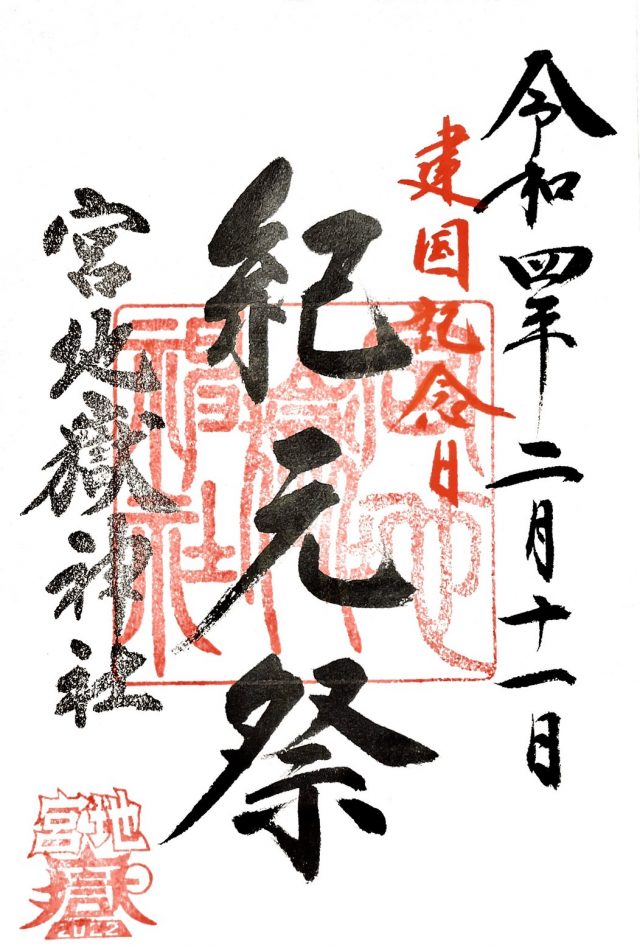 令和四年二月十一日
建国記念日
紀元祭
宮地嶽神社
宮地嶽
2022